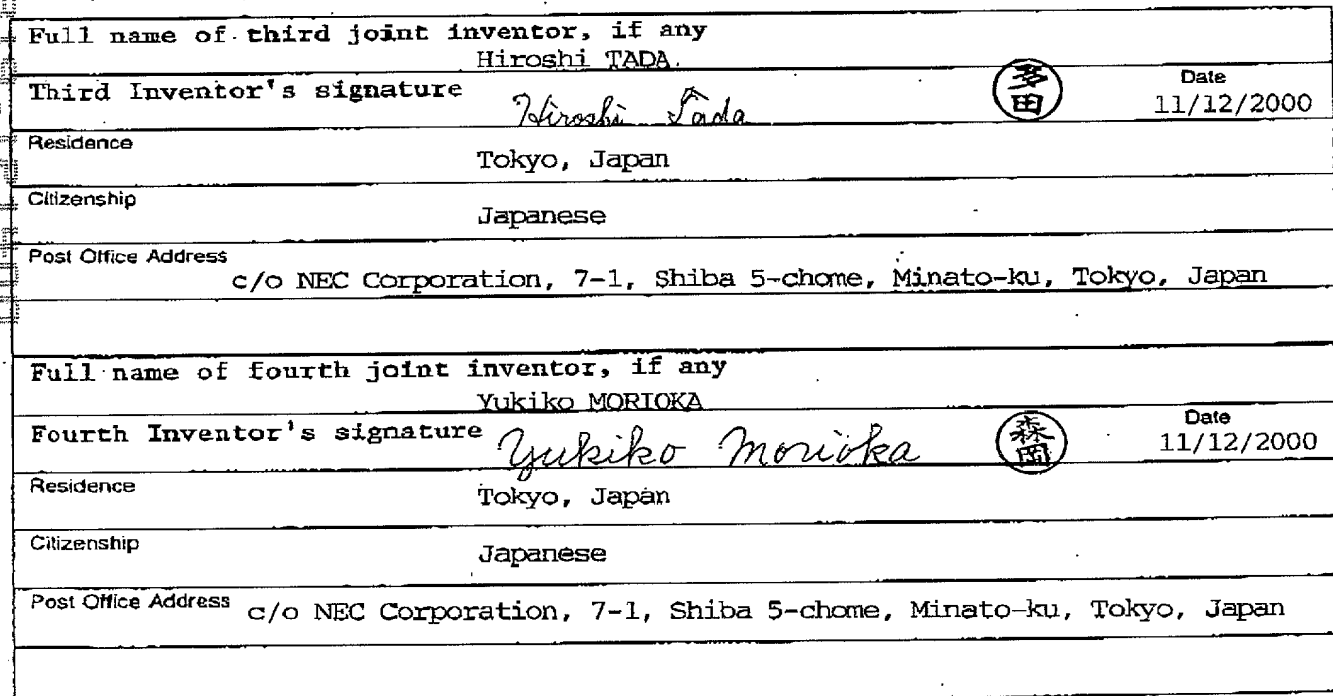 Full name of third joint inventor, if any
Hiroshi TADA.
Third Inventor's signature Hiroshi Tada 多田 Date 11/12/2000
Residence Tokyo, Japan
Citizenship Japanese
Post Office Address c/o NEC Corporation, 7-1, Shiba 5-chome, Minato-ku, Tokyo, Japan
Full name of fourth joint inventor, if any
Yukiko MORIOKA
Fourth Inventor's signature Yukiko Morioka 森岡 Date 11/12/2000
Residence Tokyo, Japan
Citizenship Japanese
Post Office Address c/o NEC Corporation, 7-1, Shiba 5-chome, Minato-ku, Tokyo, Japan